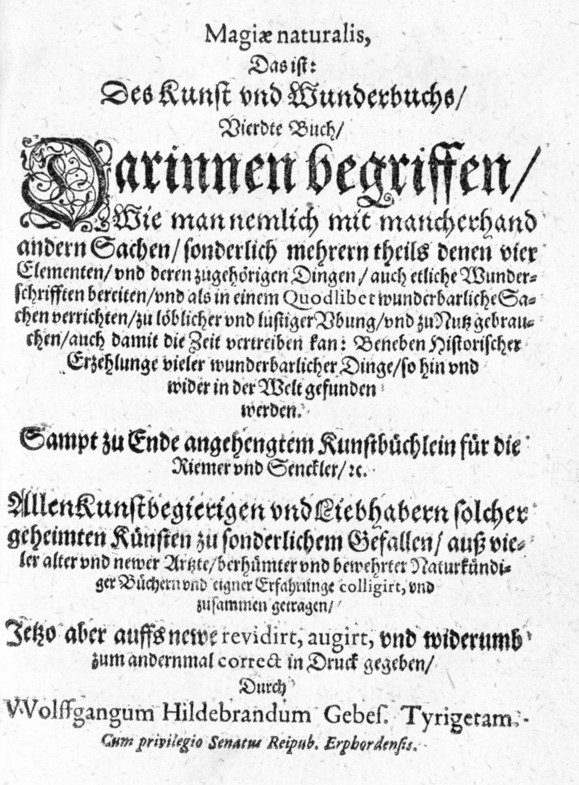 Magiæ naturalis,
Das ist:
Des Kunst vnd Wunderbuchs/
Vierdte Buch/
Darinnen begriffen/
Wie man nemlich mit mancherhand
andern Sachen/ sonderlich mehrern theils denen vier
Elementen/ vnd deren zugehörigen Dingen/ auch etliche Wunder-
schrifften bereiten/ vnd als in einem Quodlibet wunderbarliche Sa-
chen verrichten/ zu löblicher vnd lustiger Vbung/ vnd zu Nutz gebrau-
chen/ auch damit die Zeit vertreiben kan: Beneben Historischer
Erzehlunge vieler wunderbarlicher Dinge/ so hin vnd
wider in der Welt gefunden
werden.
Sampt zu Ende angehengtem Kunstbüchlein für die
Riemer vnd Senckler/ ꝛc.
Allen Kunstbegierigen vnd Liebhabern solcher
geheimten Künsten zu sonderlichem Gefallen/ auß vie-
ler alter vnd newer Artzte/ berhümter vnd bewehrter Naturkündi-
ger Büchern vnd eigner Erfahrunge colligirt, vnd
zusammen getragen/
Jetzo aber auffs newe revidirt, augirt, vnd widerumb
zum andernmal correct in Druck gegeben/
Durch
VVolffgangum Hildebrandum Gebes. Tyrigetam.
Cum privilegio Senatus Reipub. Erphordensis.